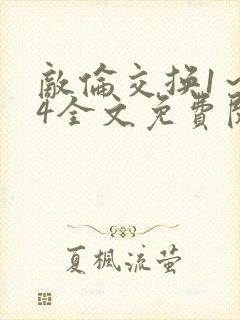 敵倫交換1～
4全文免費閱
夏楓流萤